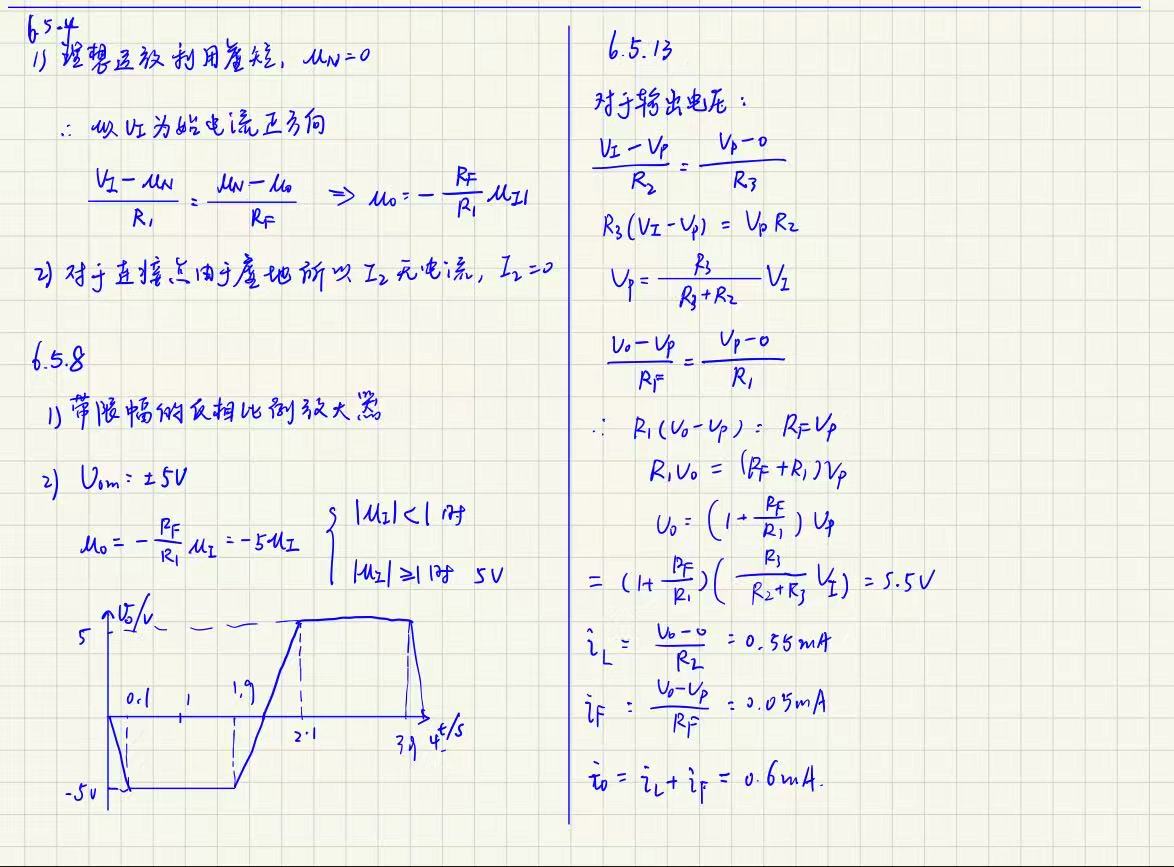 6.5.4
1) 理想运放利用虚短, u_N=0
∴ 以 V_I 为始电流正方向
(V_I - u_N)/R_1 = (u_N - u_o)/R_F ⇒ u_o = - (R_F/R_1) u_I1
2) 对于连接点由于虚地所以 I_2 无电流, I_2=0
6.5.8
1) 带限幅的反相比例放大器
2) U_om = ±5V
u_o = - (R_F/R_1) u_I = -5u_I { |u_I|<1 时
|u_I| ≥1 时 5V
V_o/V
5
0.1 1 1.9
2.1 3.9 4 t/s
-5V
6.5.13
对于输出电压:
(V_I - V_P)/R_2 = (V_P - 0)/R_3
R_3(V_I - V_P) = V_P R_2
V_P = R_3/(R_3+R_2) V_I
(V_o - V_P)/R_F = (V_P - 0)/R_1
∴ R_1(V_o - V_P) = R_F V_P
R_1 V_o = (R_F + R_1)V_P
V_o = (1 + R_F/R_1) V_P
= (1 + R_F/R_1)(R_3/(R_2+R_3) V_I) = 5.5V
i_L = (V_o - 0)/R_2 = 0.55mA
i_F = (V_o - V_P)/R_F = 0.05mA
i_o = i_L + i_F = 0.6mA.